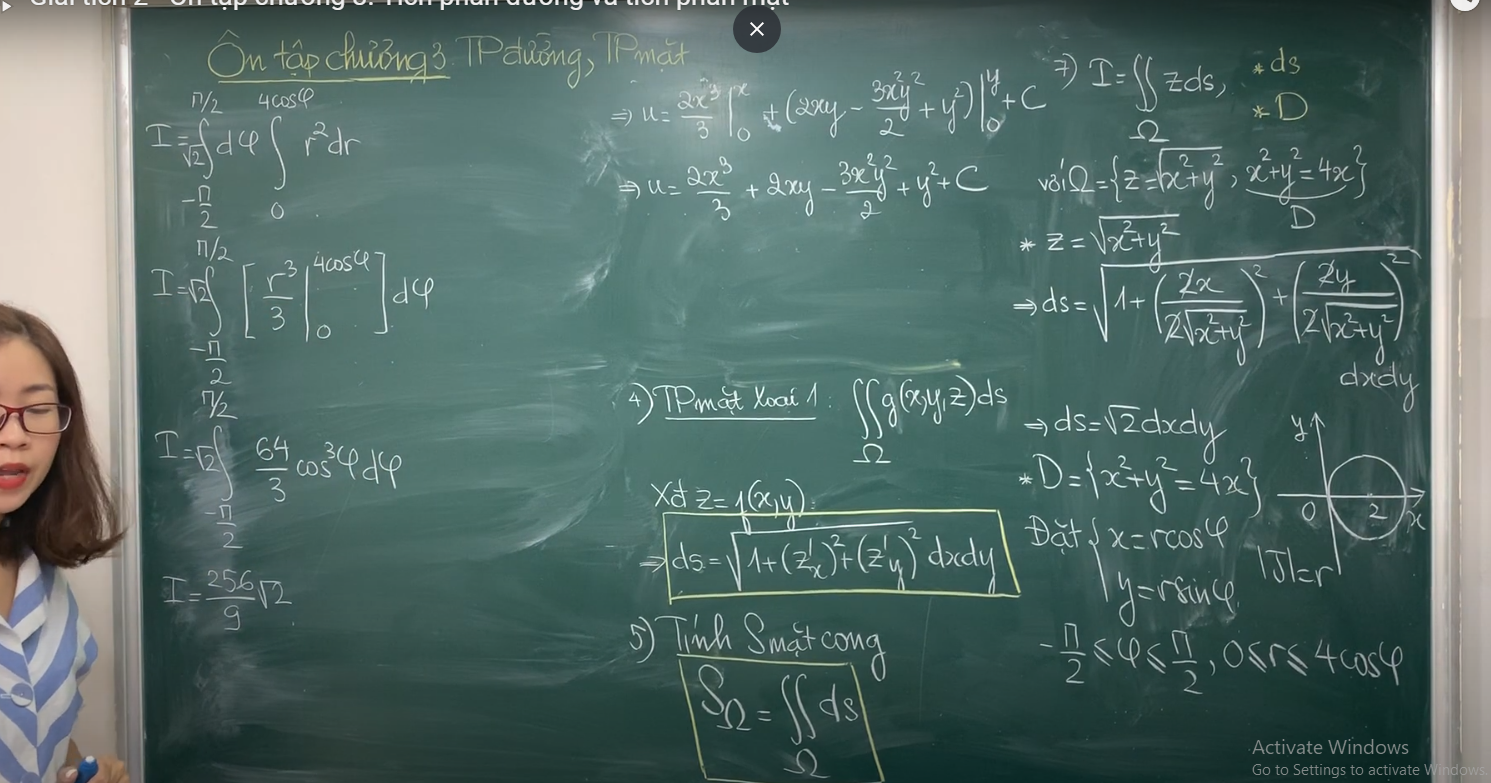 Giải tích 2 - Ôn tập chương 3: Tích phân đường và tích phân mặt
Ôn tập chương 3 TP đường, TP mặt
I = √2 ∫_{-π/2}^{π/2} dφ ∫_0^{4cosφ} r² dr
I = √2 ∫_{-π/2}^{π/2} [ r³/3 |_0^{4cosφ} ] dφ
I = √2 ∫_{-π/2}^{π/2} 64/3 cos³φ dφ
I = 256/9 √2
⇒ u = 2x³/3 |_0^x + (2xy - 3x²y²/2 + y²) |_0^y + C
⇒ u = 2x³/3 + 2xy - 3x²y²/2 + y² + C
4) TP mặt loại 1 : ∬_Ω g(x,y,z) ds
Xét z = f(x,y) :
⇒ ds = √(1 + (z'x)² + (z'y)²) dxdy
5) Tính S mặt cong
S_Ω = ∬_Ω ds
7) I = ∬_Ω z ds,
* ds
* D
với Ω = {z = √(x²+y²) , x²+y² = 4x}
D
* z = √(x²+y²)
⇒ ds = √(1 + (2x/(2√(x²+y²)))² + (2y/(2√(x²+y²)))²)
dxdy
⇒ ds = √2 dxdy
* D = {x²+y² = 4x}
y
0 2 x
Đặt { x = r cosφ
y = r sinφ
|J| = r
-π/2 ≤ φ ≤ π/2 , 0 ≤ r ≤ 4cosφ
Activate Windows
Go to Settings to activate Windows.